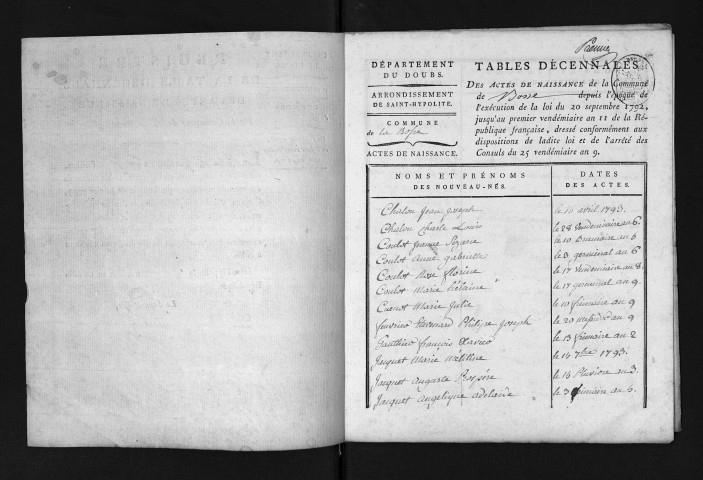 Première
DÉPARTEMENT
DU DOUBS.
ARRONDISSEMENT
DE SAINT-HYPOLITE.
COMMUNE
de la Bosse
ACTES DE NAISSANCE.
TABLES DÉCENNALES
DES ACTES DE NAISSANCE de la Commune
de Bosse depuis l'époque de
l'exécution de la loi du 20 septembre 1792,
jusqu'au premier vendémiaire an 11 de la Ré-
publique française, dressé conformément aux
dispositions de ladite loi et de l'arrêté des
Consuls du 25 vendémiaire an 9.
NOMS ET PRÉNOMS
DES NOUVEAU-NÉS.
DATES
DES ACTES.
Chalon Jean Joseph le 10 avril 1793.
Chalon Charle Louis le 28 Vendemiaire an 6.
Coulot Jeanne le 10 Brumaire an 6
Coulot Anne gabrielle le 3 germinal an 6
Coulot Rose florine le 17 Vendemiaire an 8.
Coulot Marie le 17 germinal an 9.
Cuenot Marie Julie le 10 frimaire an 9
fevrier Philipe Joseph le 20 messidor an 9
Gauthier françois Xavier le 13 frimaire an 2
Jacquet Marie le 16 7bre 1793.
Jacquet Auguste le 16 Pluviose an 3.
Jacquet Angelique adelaide le 3 frimaire an 6.